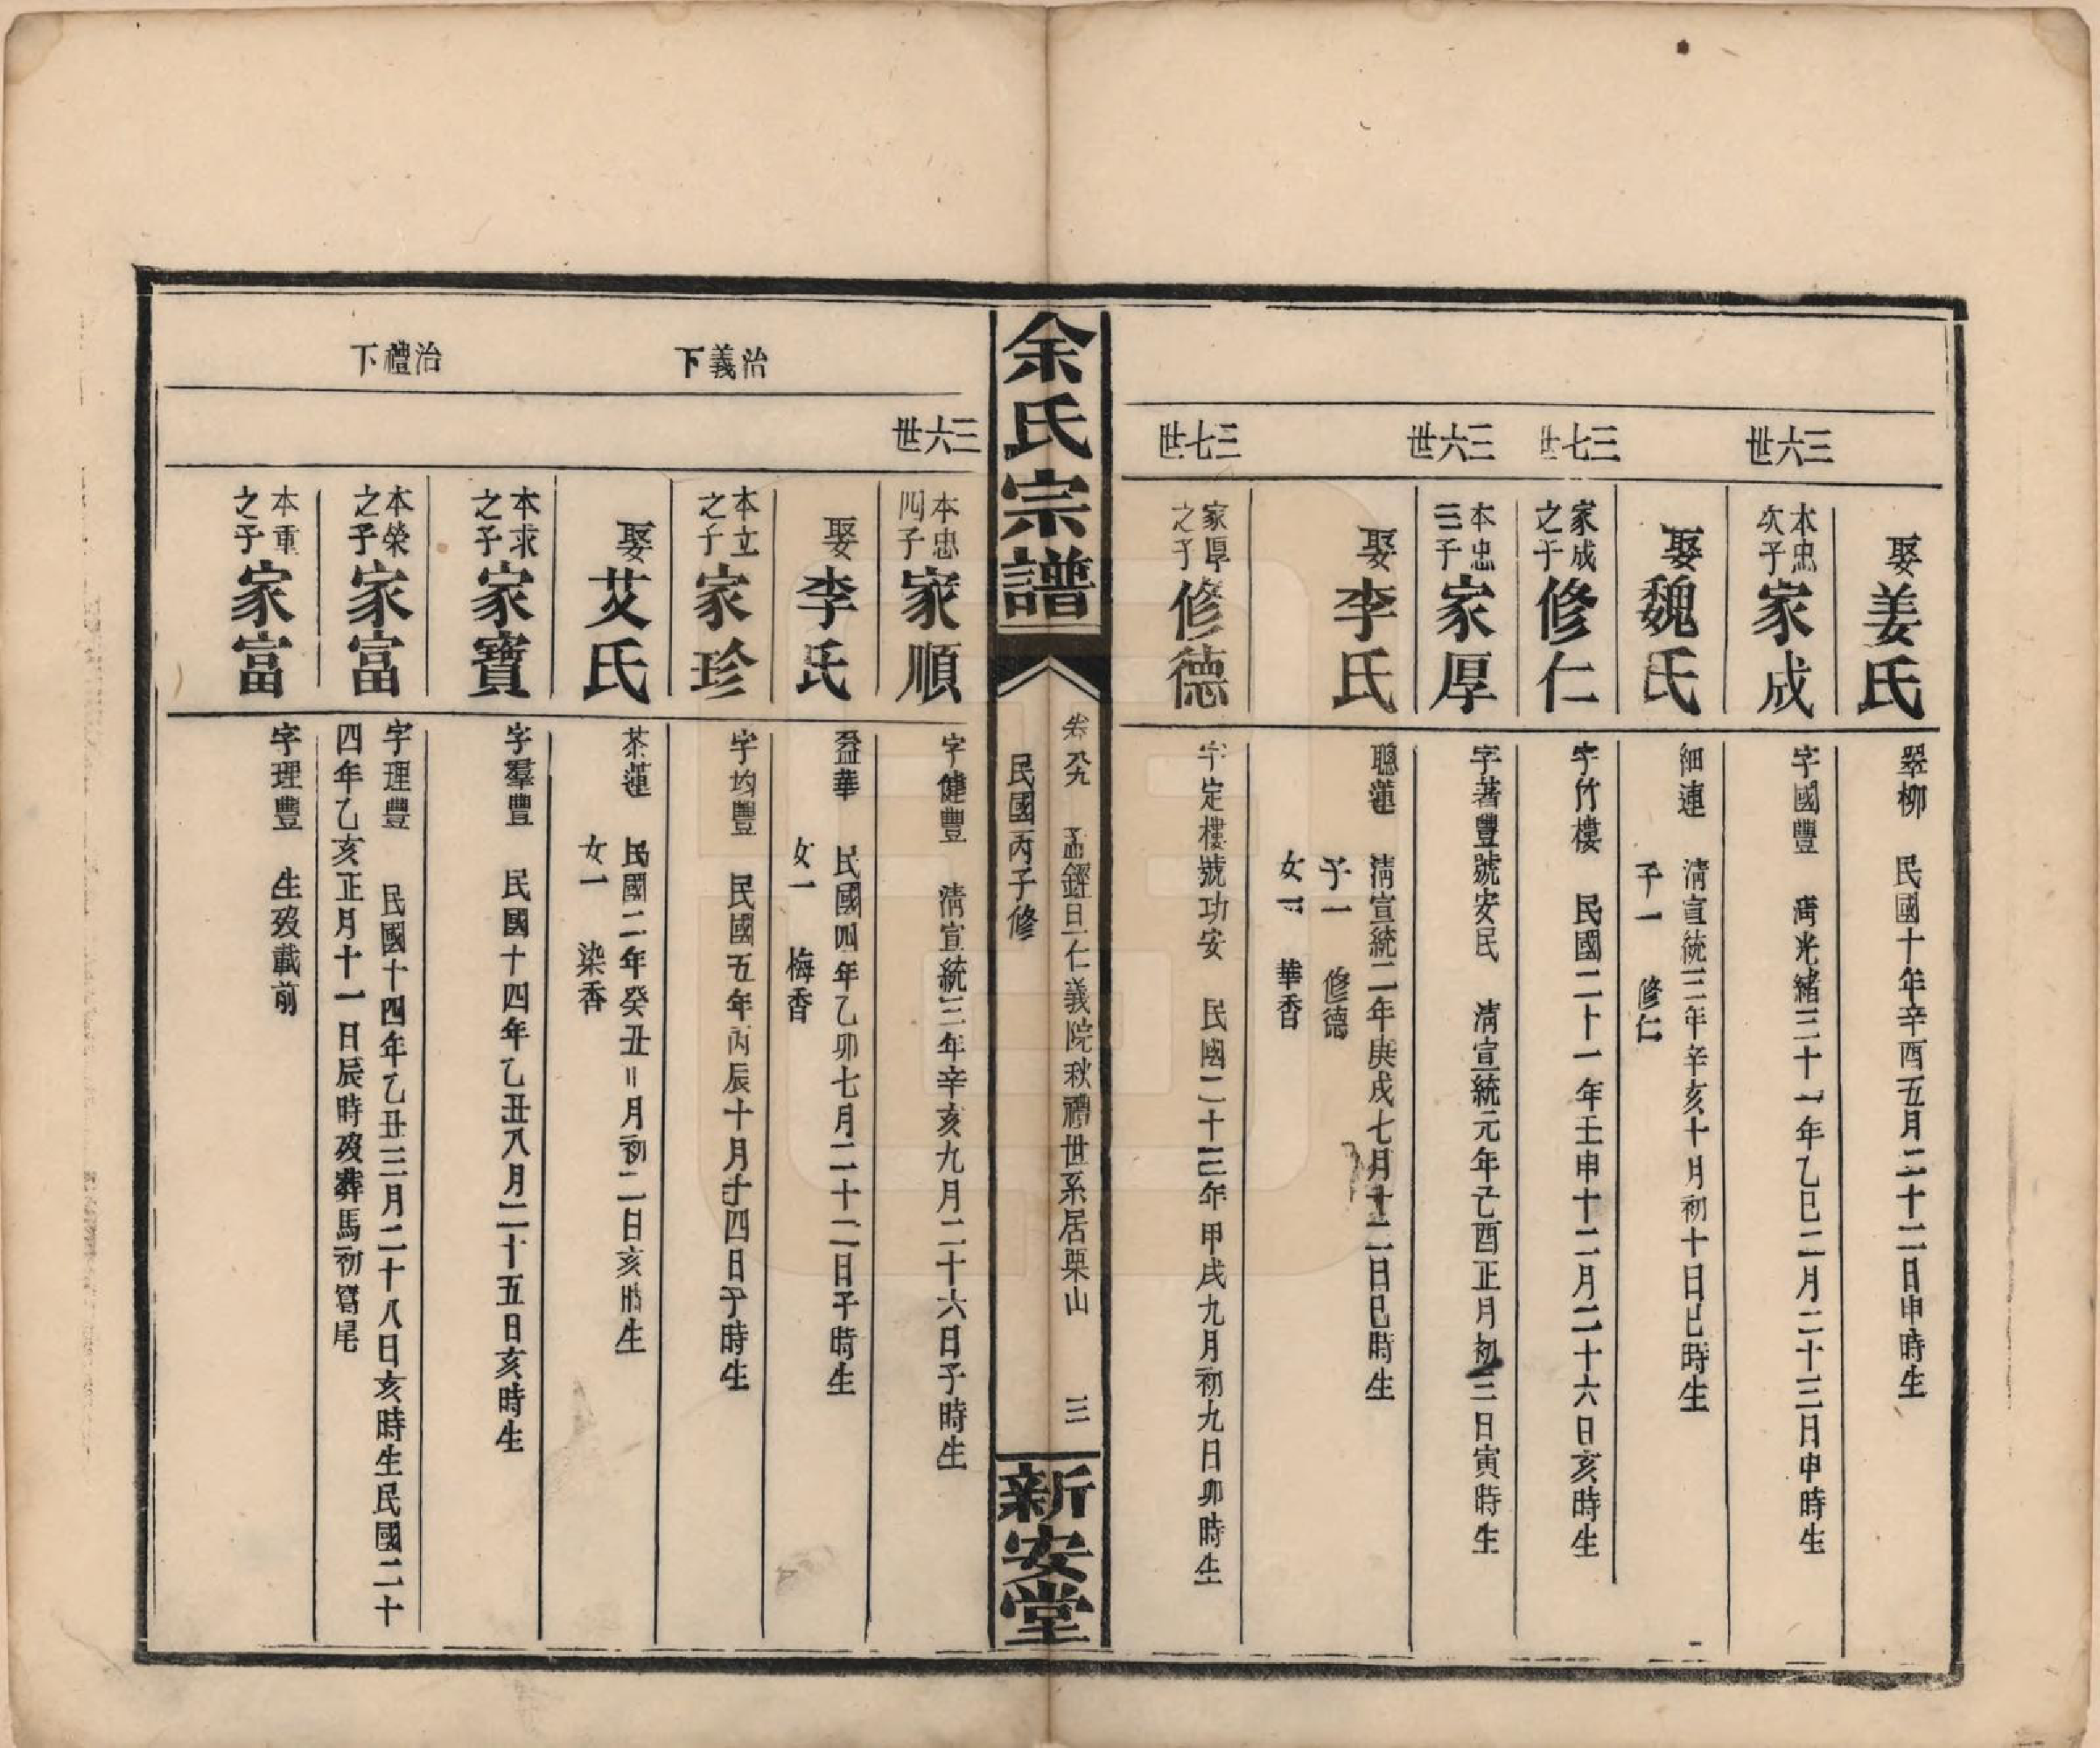 娶姜氏 翠柳 民國十年辛酉五月二十二日申時生
三六世
本忠次子家成 字國豐 清光緒三十一年乙巳二月二十三日申時生
娶魏氏 細連 清宣統三年辛亥十月初十日巳時生
子一 修仁
三七世
家成之子修仁 字竹樓 民國二十一年壬申十二月二十六日亥時生
三六世
本忠三子家厚 字著豐號安民 清宣統元年己酉正月初三日寅時生
娶李氏 聰蓮 清宣統二年庚戌七月十二日巳時生
子一 修德
女一 華香
三七世
家厚之子修德 字定樓號功安 民國二十三年甲戌九月初九日卯時生
余氏宗譜
卷 孟鏗旦仁義院秋禮世系居栗山 三
民國丙子修
新安堂
三六世
本忠四子家順 字健豐 清宣統三年辛亥九月二十六日子時生
娶李氏 益華 民國四年乙卯七月二十二日子時生
女一 梅香
治義下
本立之子家珍 字均豐 民國五年丙辰十月十四日子時生
娶艾氏 茶蓮 民國二年癸丑二月初二日亥時生
女一 染香
本求之子家寶 字羣豐 民國十四年乙丑八月二十五日亥時生
治禮下
本榮之子家富 字理豐 民國十四年乙丑三月二十八日亥時生民國二十
四年乙亥正月十一日辰時歿葬馬初窩尾
本重之子家富 字理豐 生歿載前